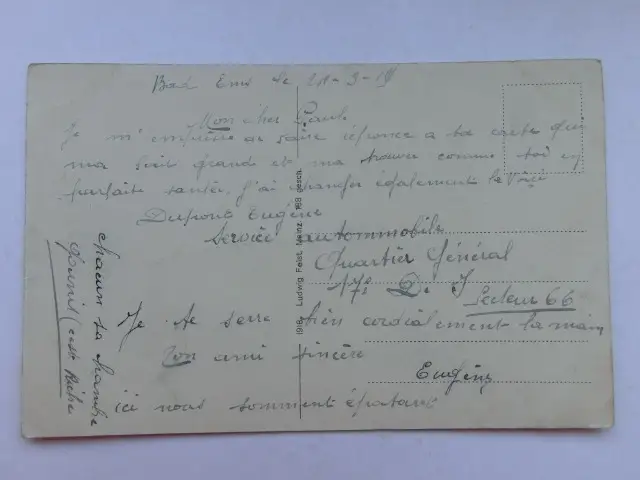 Bad Ems le 21-3-19
Mon cher Paul
Je m'empresse de faire réponse a ta carte qui
ma fait grand et ma trouver comme toi en
parfaite santé, j'ai changer également le voici
Dupont Eugène
Service autommobile
Quartier Général
17e D. I Secteur 66
Je te serre bien cordialement la main
Ton ami sincère
Eugène
ici nous somment épatant
chacun sa chambre
fournis (cest Riche
Ludwig Feist, Mainz. 188 gesch.